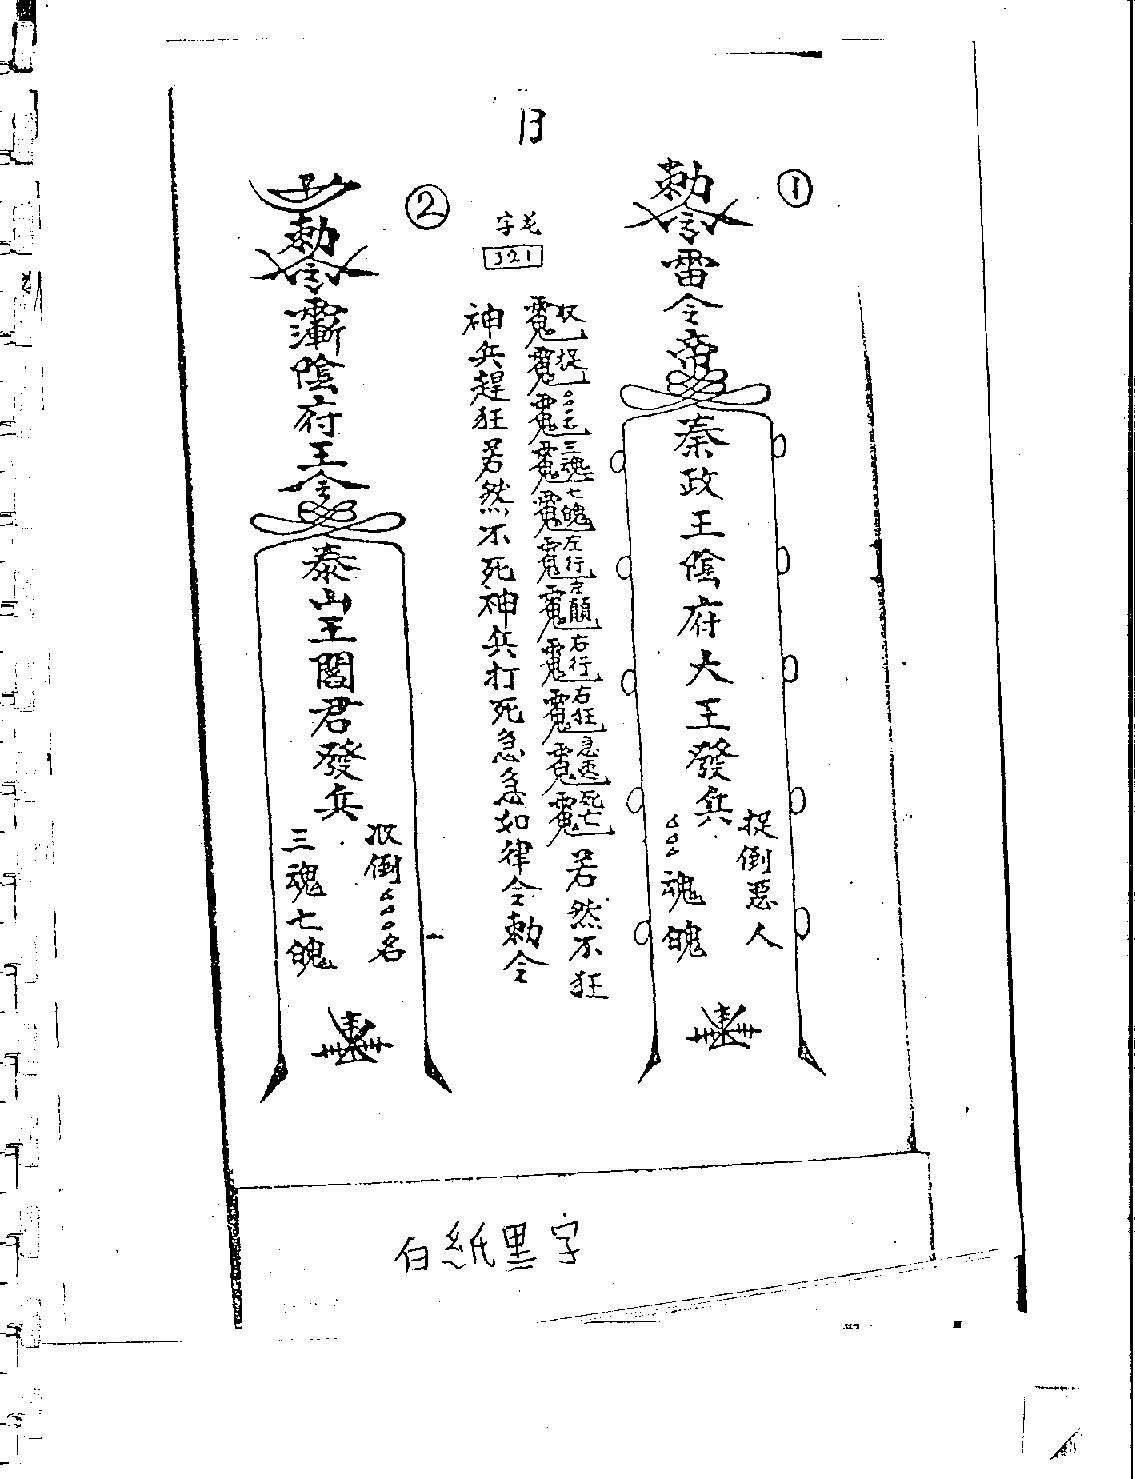 ①
勅令雷令帝
秦政王陰府大王發兵
捉倒惡人
魂魄
收捉
三魂七魄左行左顛右行右狂急速死亡
若然不狂
神兵趕狂若然不死神兵打死急急如律令勅令
321
②
勅令
陰府王令
泰山王閻君發兵
收倒
名
三魂七魄
白紙黑字